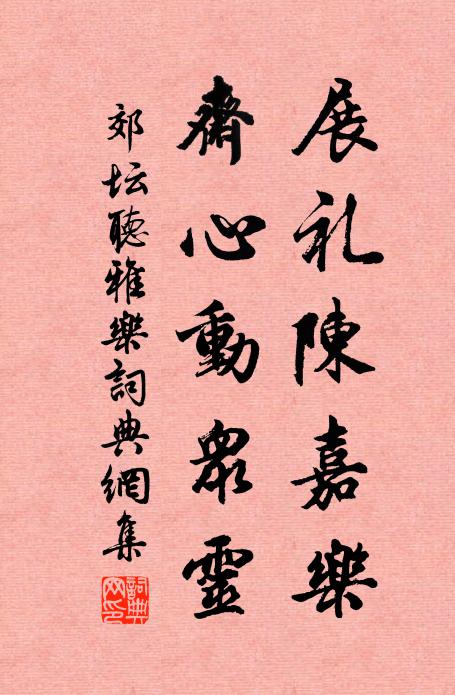 展礼陳嘉樂
齋心動眾靈
郊坛聴雅樂詞典網集
詞典网印